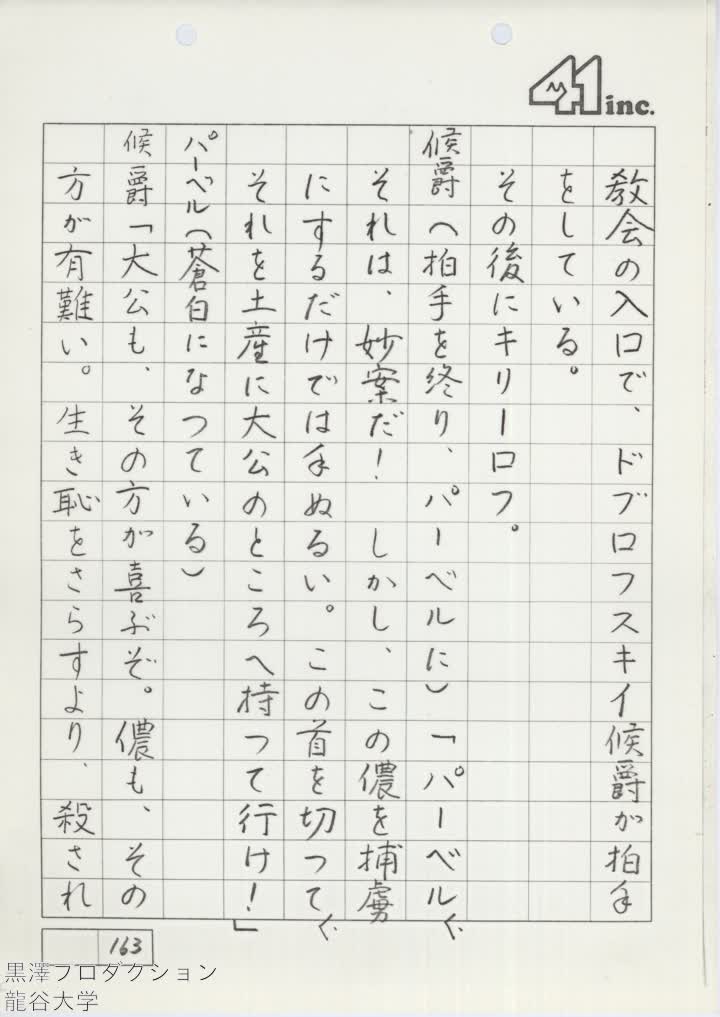 41 inc.
教会の入口で、ドブロフスキイ候爵が拍手
をしている。
その後にキリーロフ。
候爵(拍手を終り、パーベルに)「パーベル
それは、妙案だ! しかし、この儂を捕虜
にするだけでは手ぬるい。この首を切つて
それを土産に大公のところへ持つて行け!」
パーベル(蒼白になつている)
候爵「大公も、その方が喜ぶぞ。儂も、その
方が有難い。生き恥をさらすより、殺され
163
黒澤プロダクション
龍谷大学